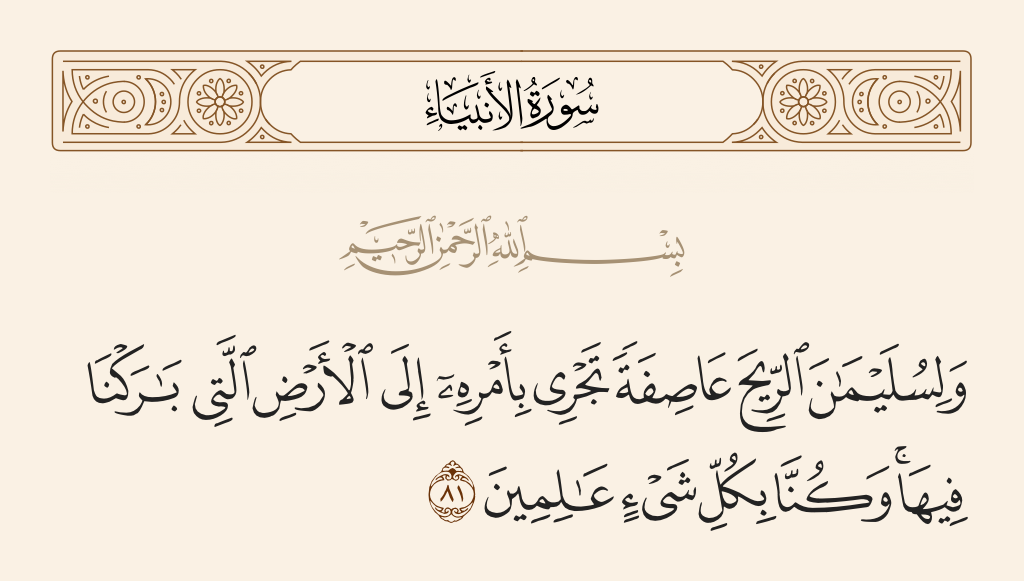 سُورَةُ الأَنبِيَاءِ
بِسْمِ ٱللَّهِ ٱلرَّحْمَٰنِ ٱلرَّحِيمِ
وَلِسُلَيْمَٰنَ ٱلرِّيحَ عَاصِفَةً تَجْرِى بِأَمْرِهِۦٓ إِلَى ٱلْأَرْضِ ٱلَّتِى بَٰرَكْنَا
فِيهَا ۚ وَكُنَّا بِكُلِّ شَىْءٍ عَٰلِمِينَ ٨١